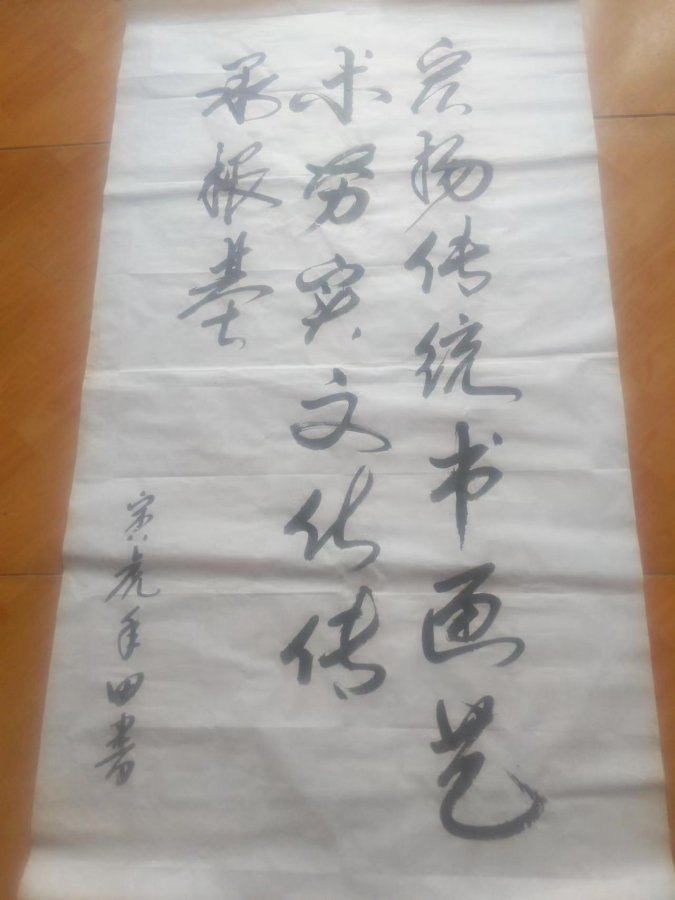 宏扬传统书画艺
术劳实文化传
承根基
寅虎年田书